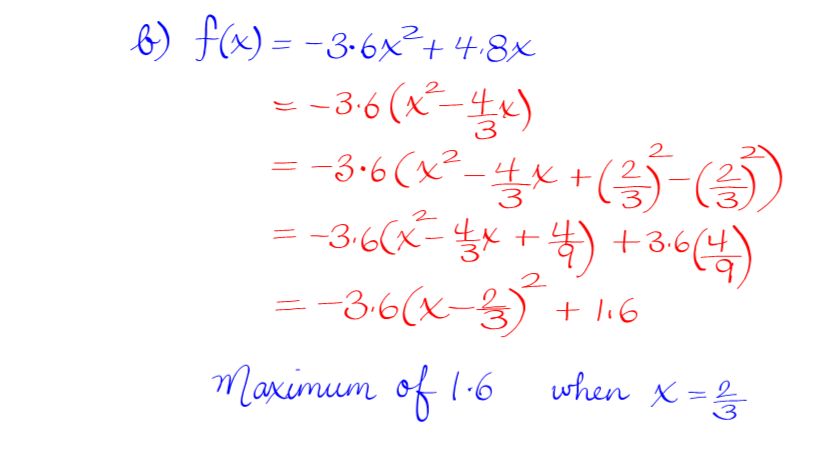 b) f(x) = -3.6x² + 4.8x
= -3.6(x² - 4/3 x)
= -3.6(x² - 4/3 x + (2/3)² - (2/3)²)
= -3.6(x² - 4/3 x + 4/9) + 3.6(4/9)
= -3.6(x - 2/3)² + 1.6
Maximum of 1.6 when x = 2/3